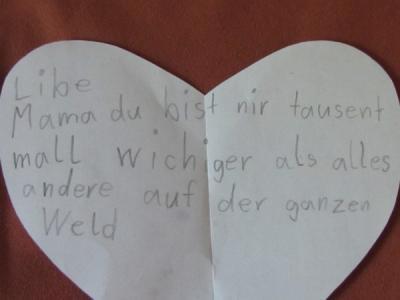 Libe
Mama du bist nir tausent
mall wichiger als alles
andere auf der ganzen
Weld